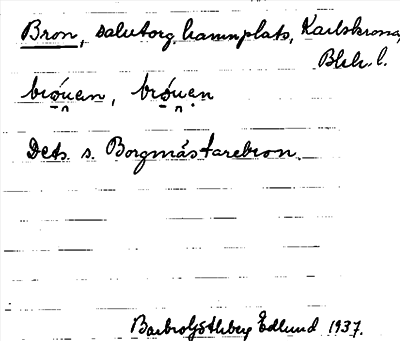 Bron, salutorg, hamnplats, Karlskrona,
Blek. l.
bróuen, bróuen
Dets. s. Borgmästarebron.
Barbro Götlberg Edlund 1937.